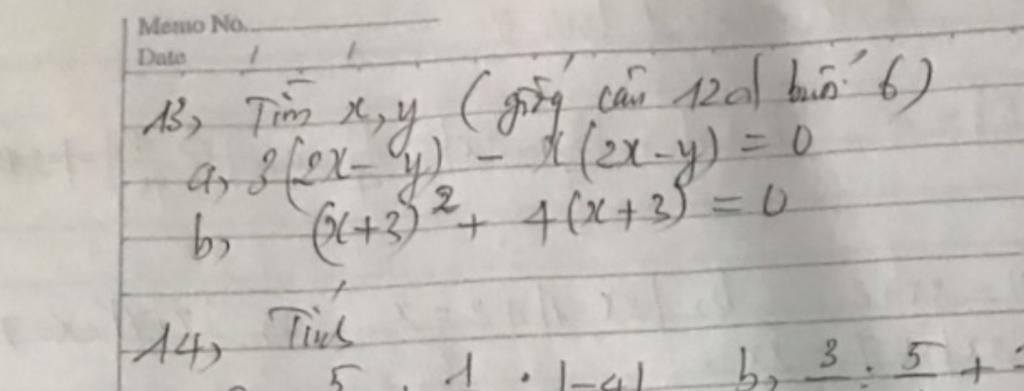 Memo No.
Date / /
13, Tìm x, y (giống câu 12d buổi 6)
a, 3(2x-y) - x(2x-y) = 0
b, (x+3)² + 4(x+3) = 0
14, Tính
5 : 1 . |-4| b, 3 : 5 +